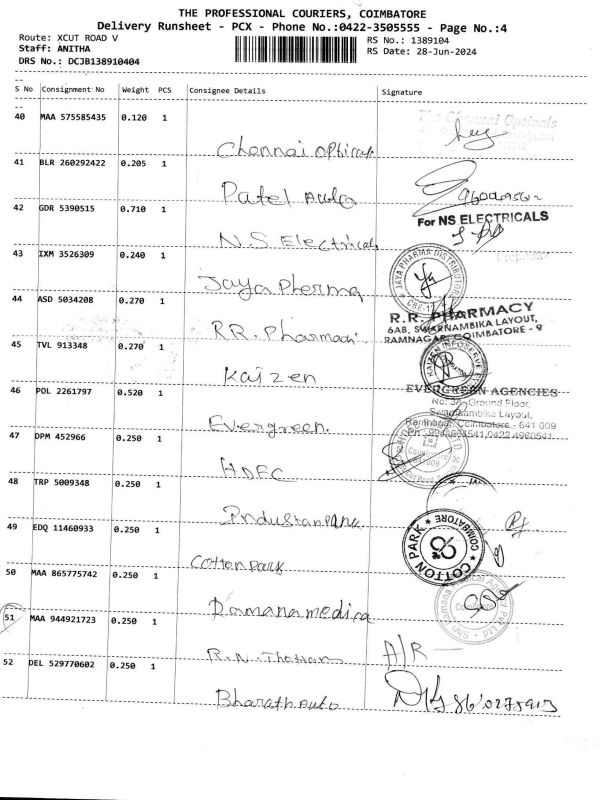 THE PROFESSIONAL COURIERS, COIMBATORE
Delivery Runsheet - PCX - Phone No.:0422-3505555 - Page No.:4
Route: XCUT ROAD V RS No.: 1389104
Staff: ANITHA RS Date: 28-Jun-2024
DRS No.: DCJB138910404
S No Consignment No Weight PCS Consignee Details Signature
40 MAA 575585435 0.120 1 Chennai opticals
The Chennai Opticals
41 BLR 260292422 0.205 1 Patel Auto
42 GDR 5390515 0.710 1 N.S. Electricals
For NS ELECTRICALS
Proprietor
43 IXM 3526309 0.240 1 Jaya Pherma
JAYA PHARMA DISTRIBUTORS
44 ASD 5034208 0.270 1 R.R. Pharmaci
R.R. PHARMACY
6AB, SWARNAMBIKA LAYOUT,
RAMNAGAR, COIMBATORE - 9
45 TVL 913348 0.270 1 Kaizen
KAIZEN INFOSERVE
46 POL 2261797 0.520 1 Evergreen.
EVERGREEN AGENCIES
No: 3A, Ground Floor,
Swarnambika Layout,
Ramnagar, Coimbatore - 641 009
47 DPM 452966 0.250 1 HDFC
48 TRP 5009348 0.250 1
49 EDQ 11460933 0.250 1 Cotten park
COTTON PARK * COIMBATORE *
50 MAA 865775742 0.250 1 Ramana medica
Coimbatore
51 MAA 944921723 0.250 1 R.N. Thottam A/R
52 DEL 529770602 0.250 1 Bharath auto